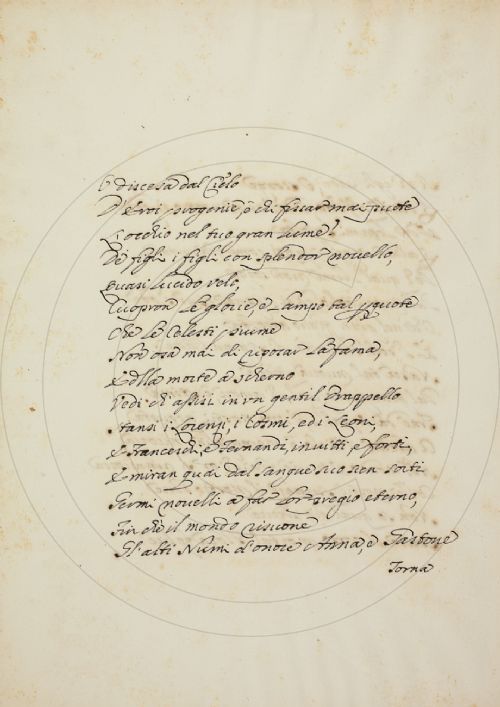 O discesa dal Cielo
D'Eroi progenie, e chi fissar mai puote
L'occhio nel tuo gran lume?
De' figli i figli con splendor novello,
Quasi lucido velo,
Cuopron le glorie, e lampo tal percuote
Che le Celesti piume
Non osa mai di riposar la fama,
E della morte a scherno
Vedi ch'assisi in un gentil Drappello
stansi i Lorenzi, i Cosmi, ed i Leoni,
e Franceschi, e Fernandi, invitti, e forti,
E miran quai dal sangue suo sien sorti
Germi novelli a far lor pregio eterno,
Fin che il mondo risuone
Gl'alti Numi d'onore Anna, e Gastone
Torna